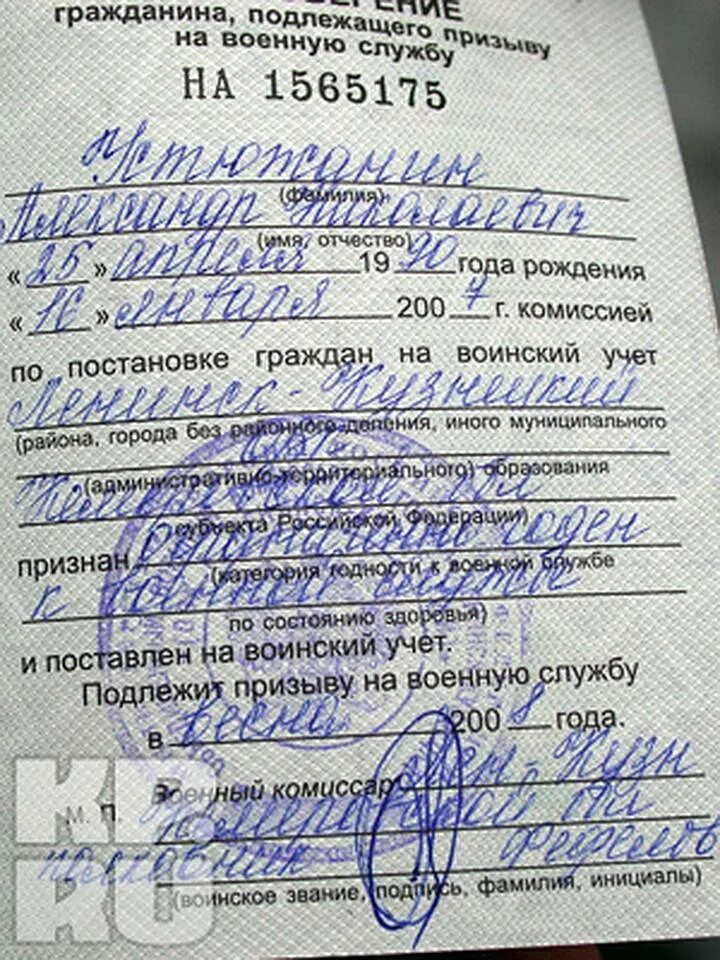 гражданина, подлежащего призыву
на военную службу
НА 1565175
Устюжанин
(фамилия)
Александр Николаевич
(имя, отчество)
« 25 » апреля 1990 года рождения
« 16 » января 2007 г. комиссией
по постановке граждан на воинский учет
Ленинск-Кузнецкий
(района, города без районного деления, иного муниципального
(административно-территориального) образования
Кемеровской обл
субъекта Российской Федерации)
признан ограниченно годен
(категория годности к военной службе
к военной службе
по состоянию здоровья)
и поставлен на воинский учет.
Подлежит призыву на военную службу
в весна 2008 года.
Военный комиссар Лен-Кузн
м. п. Кемеровской обл
полковник Фефелов
(воинское звание, подпись, фамилия, инициалы)